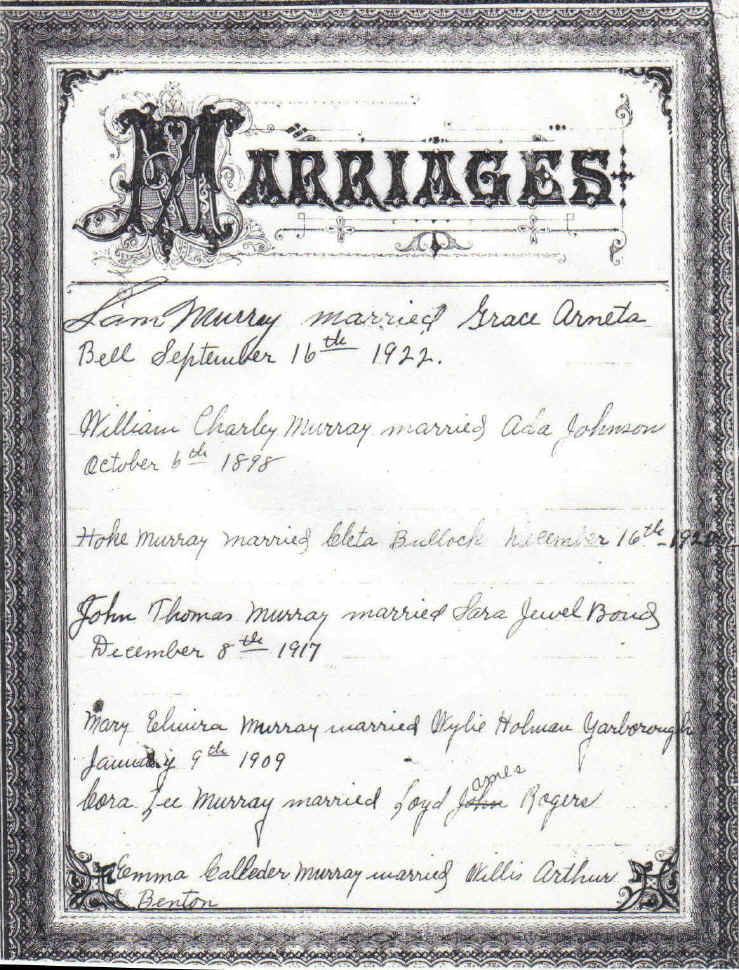 MARRIAGES
Sam Murray married Grace Arneta
Bell September 16th 1922.
William Charley Murray married Ada Johnson
October 6th 1898
Hoke Murray married Cleta Bullock December 16th
John Thomas Murray married Sara Jewel Bond
December 8th 1917
Mary Elmira Murray married Wylie Holman Yarborough
January 9th 1909
ames
Cora Lee Murray married Loyd John Rogers
Emma Calleder Murray married Willis Arthur
Benton